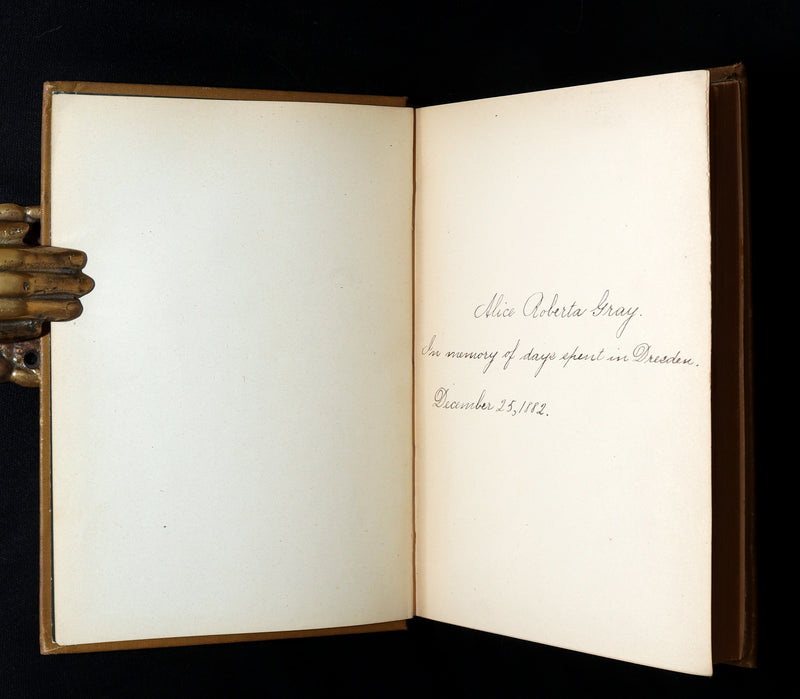 Alice Roberta Gray.
In memory of days spent in Dresden.
December 25, 1882.